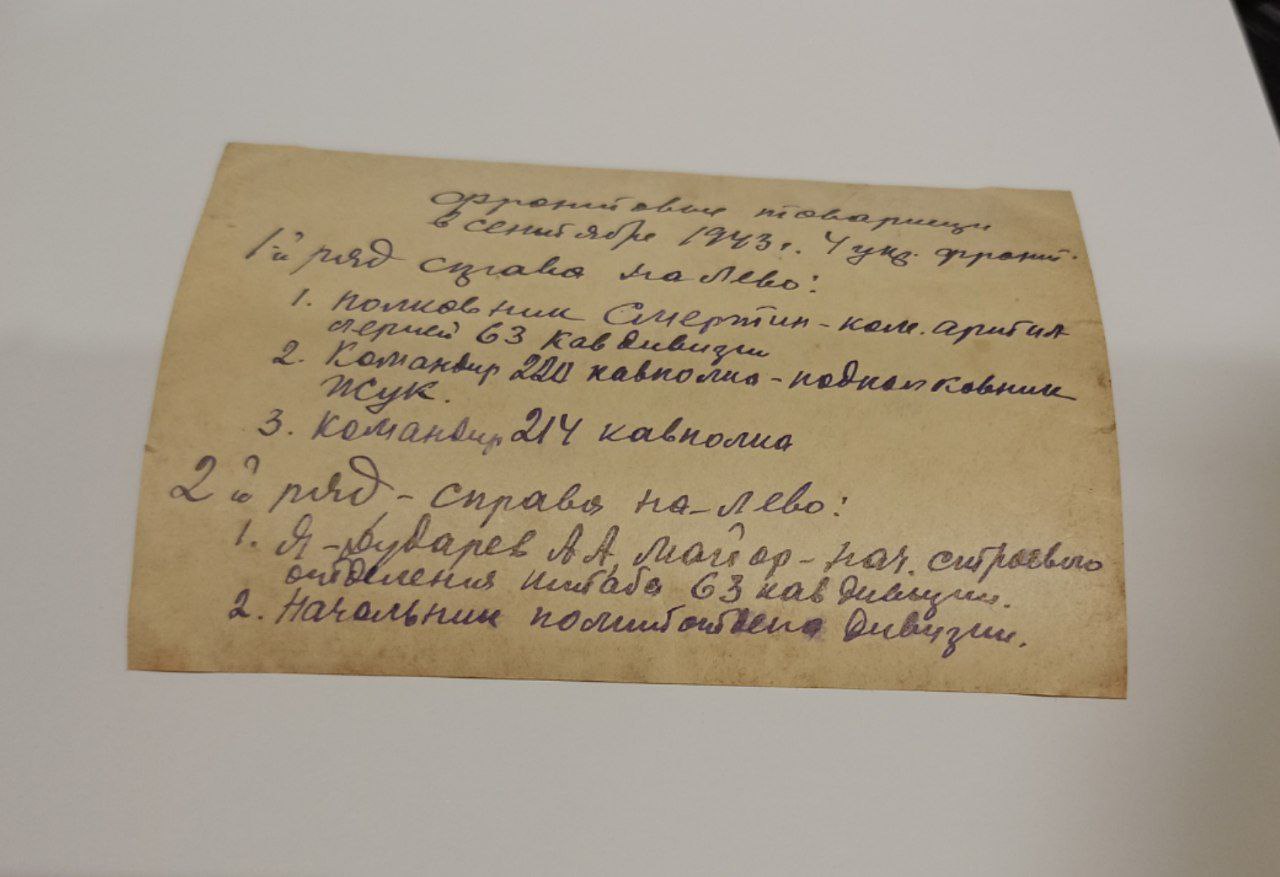 Фронтовые товарищи
в сентябре 1943 г. 4 укр. фронт.
1-й ряд справа на лево:
1. Полковник Смертин - ком. артил
лерией 63 кавдивизии
2. Командир 220 кавполка - подполковник
Жук.
3. Командир 214 кавполка
2й ряд - справа на-лево:
1. Я - Бударев А А, майор - нач. строевого
отделения штаба 63 кавдивизии.
2. Начальник политотдела дивизии.